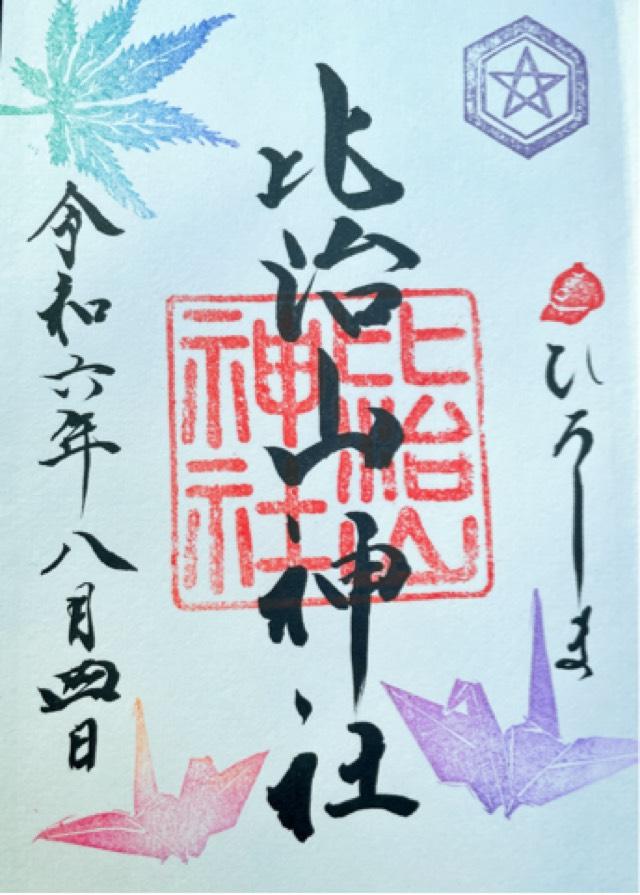 ひろしま
比治山神社
比治山神社
令和六年八月四日